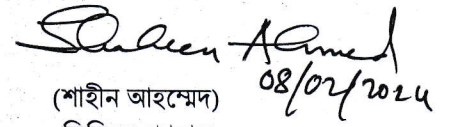 Shaheen Ahmed
08/02/2024
(শাহীন আহম্মেদ)